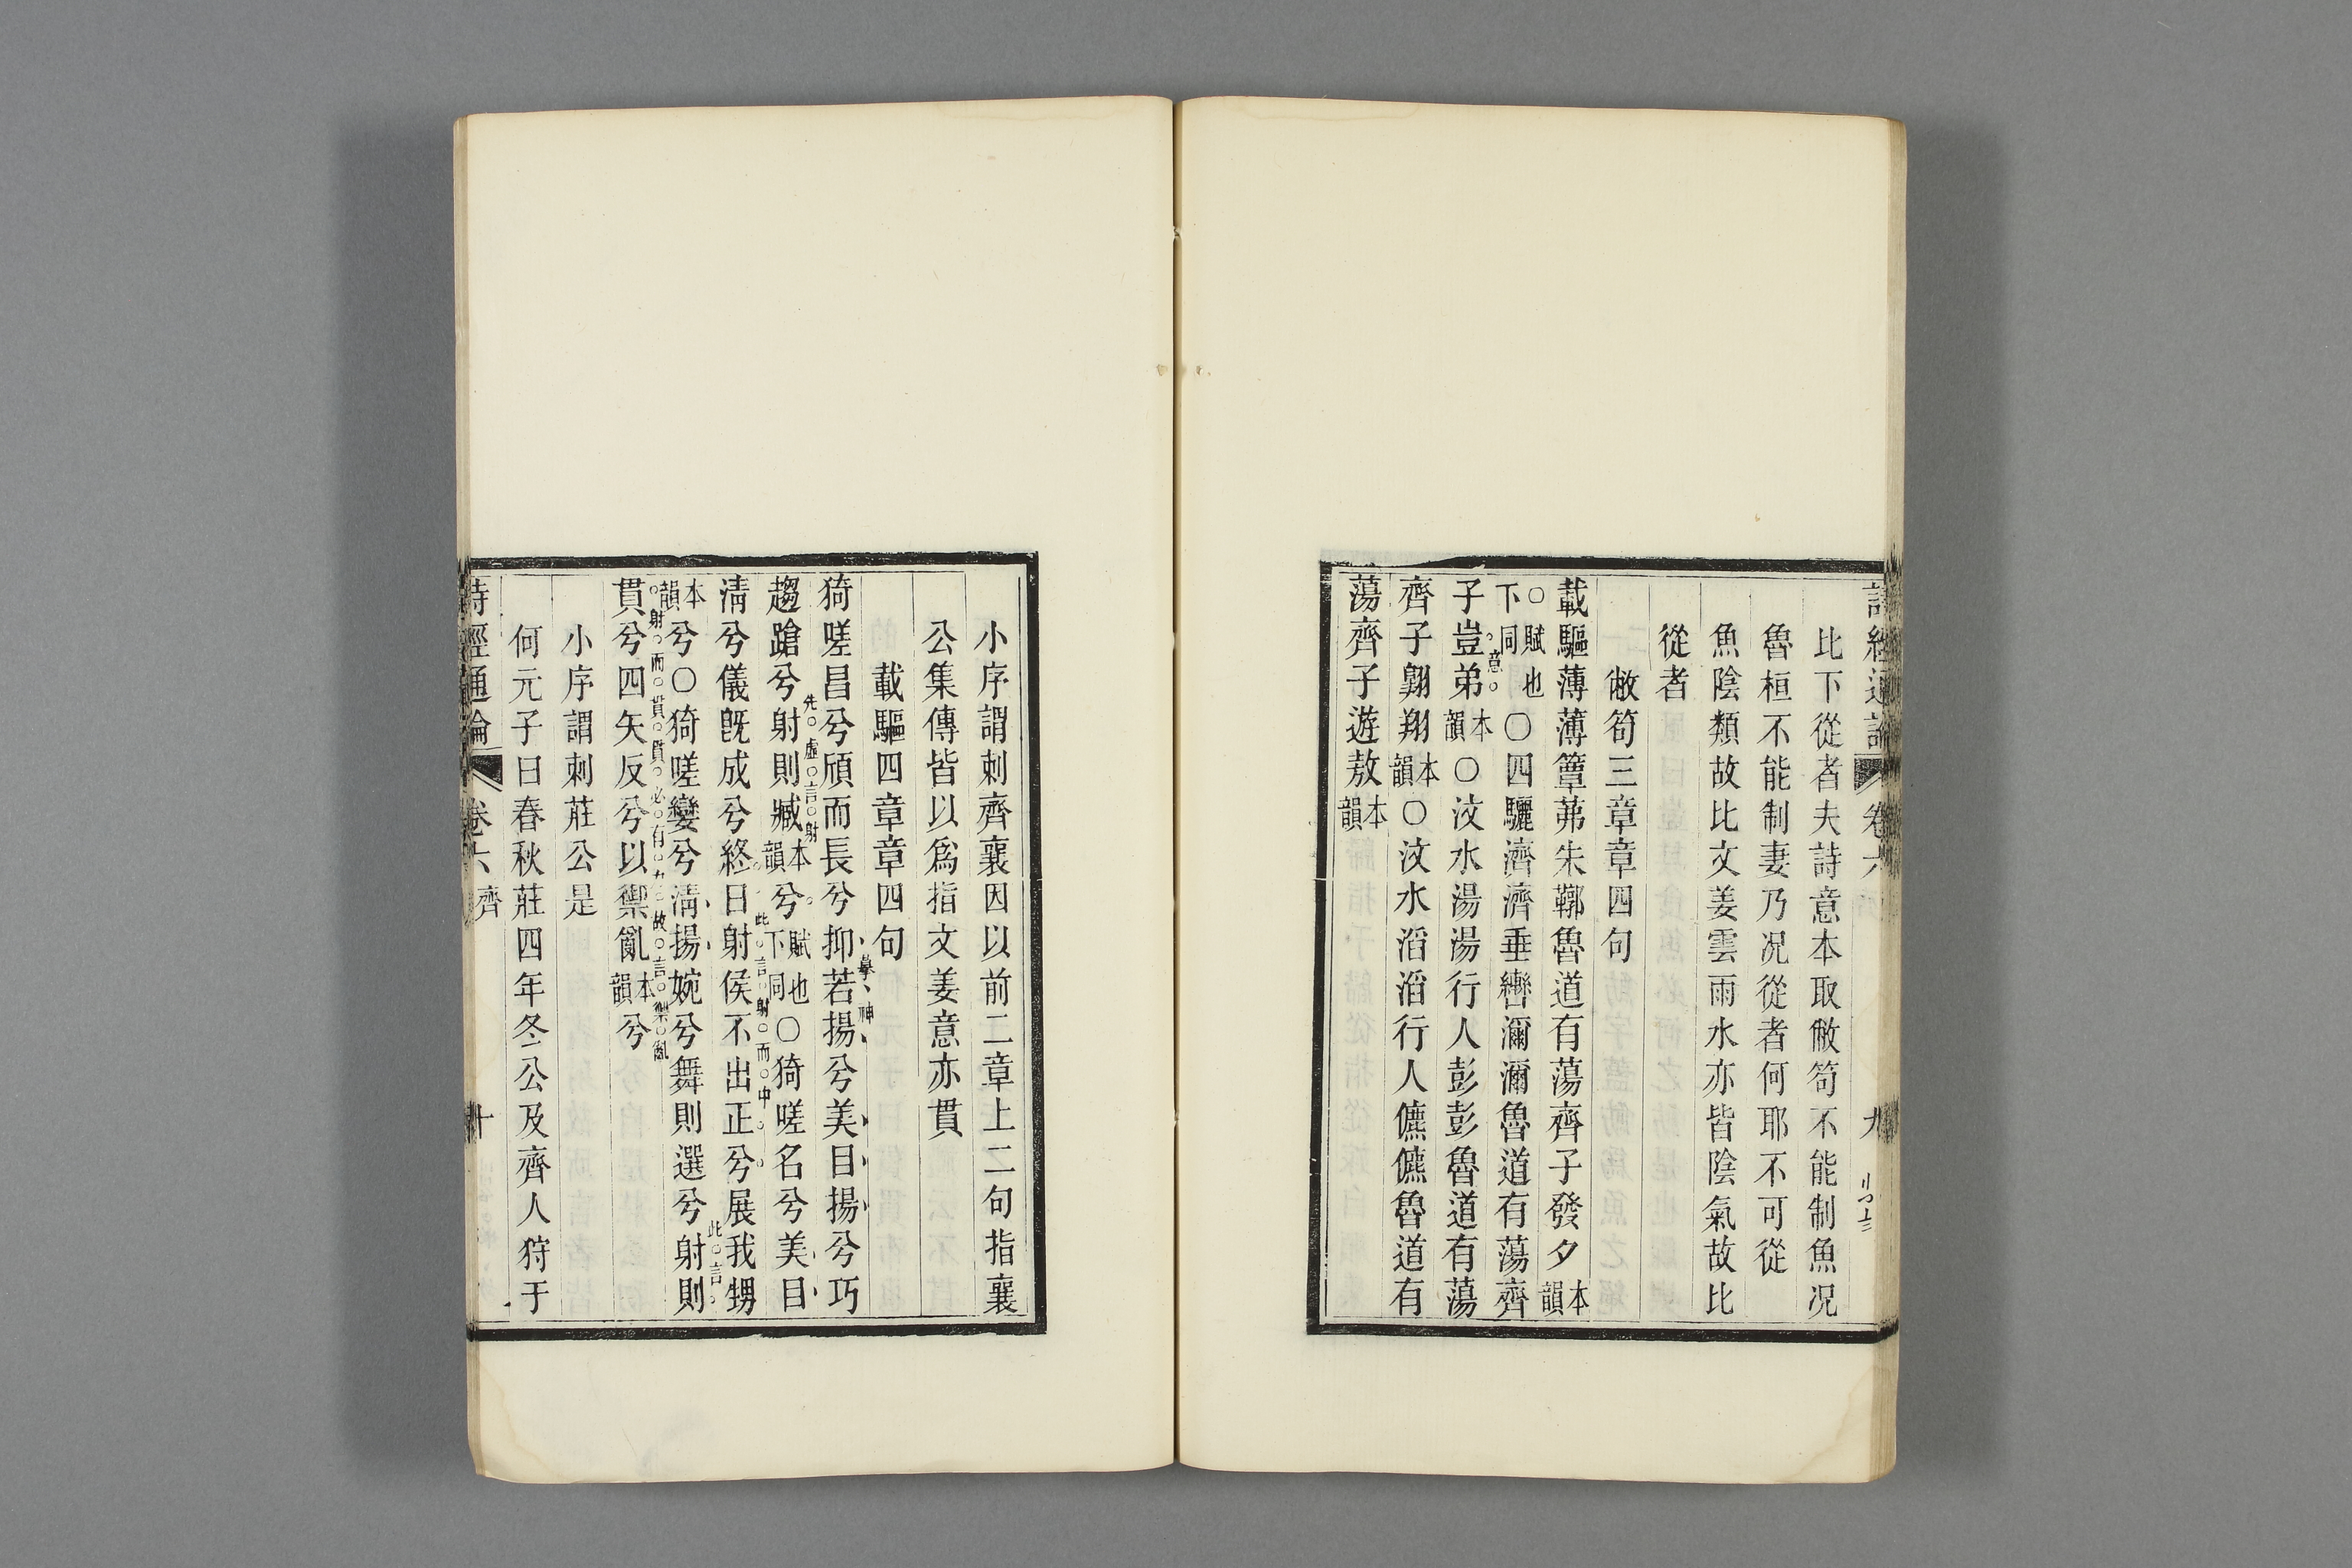 詩經通論 卷六 九
比下從者夫詩意本取敝笱不能制魚况
魯桓不能制妻乃况從者何耶不可從
魚陰類故比文姜雲雨水亦皆陰氣故比
從者
敝笱三章章四句
載驅薄薄簟茀朱鞹魯道有蕩齊子發夕本韻
○賦也下同○四驪濟濟垂轡瀰瀰魯道有蕩齊
子豈弟本韻○汶水湯湯行人彭彭魯道有蕩
意
齊子翱翔本韻○汶水滔滔行人儦儦魯道有
蕩齊子遊敖本韻
小序謂刺齊襄因以前二章上二句指襄
公集傳皆以爲指文姜意亦貫
載驅四章章四句
猗嗟昌兮頎而長兮抑若揚兮美目揚兮巧
摹神
趨蹌兮射則臧本韻兮賦也下同○猗嗟名兮美目
先虛言射
清兮儀旣成兮終日射侯不出正兮展我甥
此言射而中
本韻兮○猗嗟孌兮清揚婉兮舞則選兮射則
此言
貫兮四矢反兮以禦亂本韻兮
射而貫貫必有力故言禦亂
小序謂刺莊公是
何元子曰春秋莊四年冬公及齊人狩于
詩經通論 卷六 齊 十